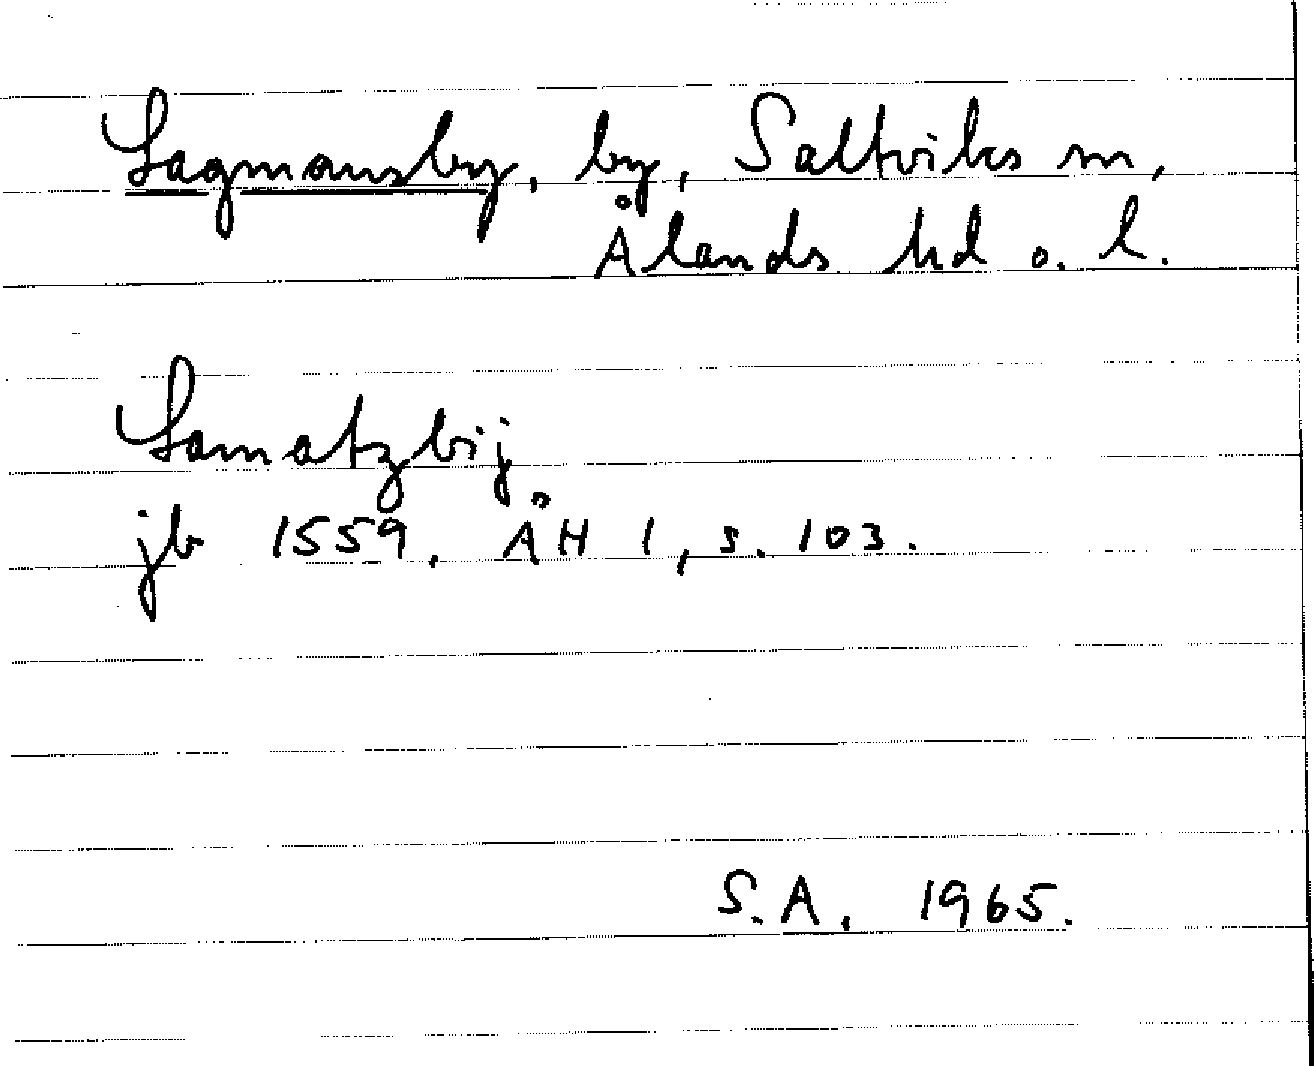 Lagmansby, by, Saltviks sn,
Ålands hd o. l.
Lamatzbij
jb 1559. ÅH 1, s. 103.
S.A. 1965.